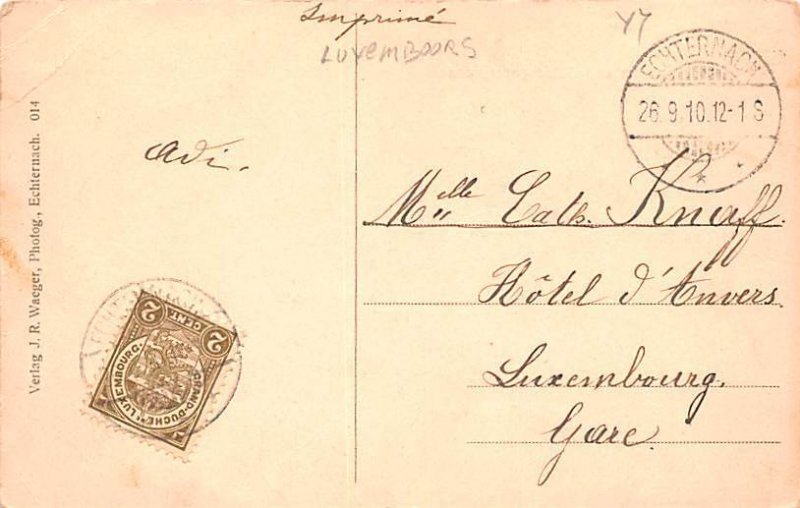 Imprimé
LUXEMBOORS
Y7
ECHTERNACH
26.9.10.12-1 S
Adi.
Melle Cath. Knaff.
Hôtel d'Anvers
Luxembourg.
Gare.
Verlag J. R. Waeger, Photog., Echternach. 014
2 2
CENTS
GRAND-DUCHÉ DE LUXEMBOURG.